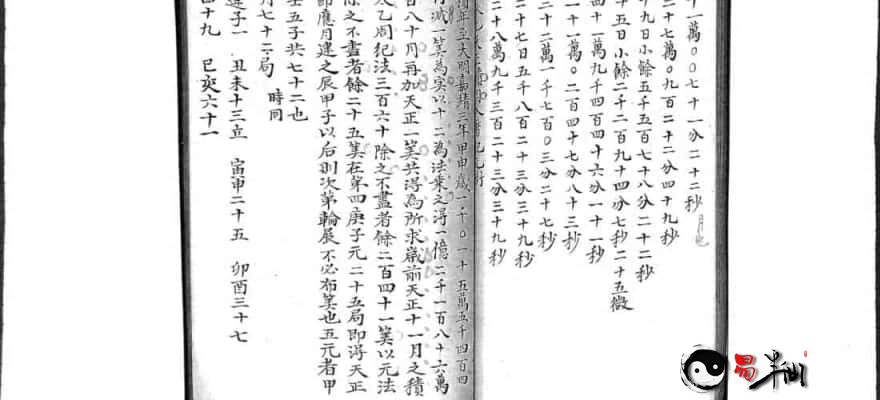 十一萬〇〇七十一分二十二秒 月也
三十七萬〇九百二十二分四十九秒
十九日小餘五千五百七十八分二十二秒
十五日小餘二千二百九十四分七秒二十五微
四十一萬九千四百四十六分一十一秒
一十一萬〇二百四十七分八十三秒
三十二萬一千七百〇三分二十七秒
二十七日五千八百二十三分三十九秒
二十八萬九千三百二十三分三十九秒
年至大明嘉靖三年甲申歲一千〇一十五萬五千四百四
減一筭為實以十二為法乗之得一億二千一百八十六萬
百八十月再加天正一筭共得為所求歲前天正十一月之積
太乙周紀法三百六十除之不盡者餘二百四十一筭以元法
除之不盡者餘二十五筭在第四庚子元二十五局即得天正
節應月建之辰甲子以后則次第輪展不必布筭也五元者甲
壬五子共七十二也
月七十二局 時同
建子一 丑未十三立 寅申二十五 卯酉三十七
四十九 巳亥六十一
易半仙